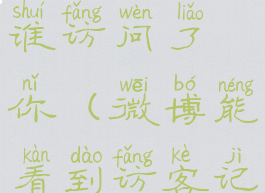 shuí fǎng wèn liǎo
谁访问了
nǐ wēi bó néng
你（微博能
kàn dào fǎng kè jì
看到访客记